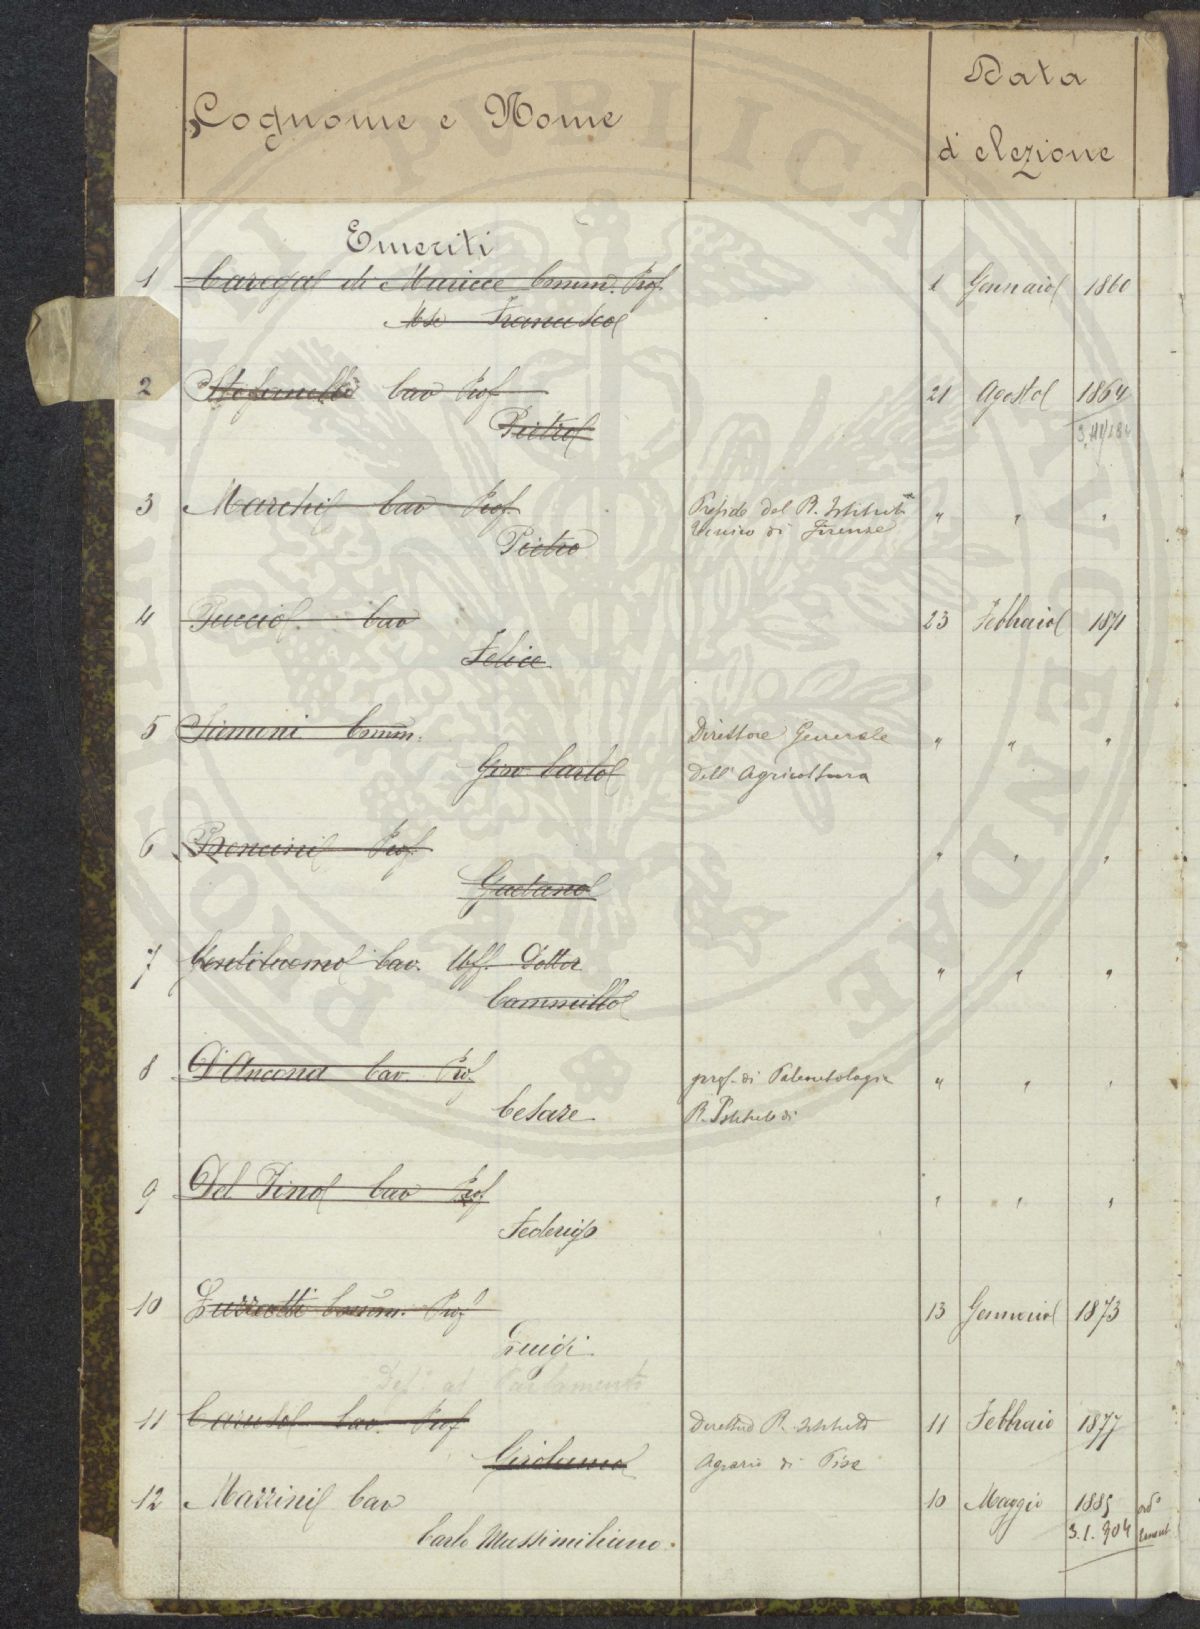 Cognome e Nome
Data
d'elezione
PROSPERITATI PUBLICAE AUGENDAE
Emeriti
1 Caregal di Muricce Comm. Prof. 1 Gennaio 1860
Mse Francesco
2 Stefanelli Cav Prof 21 Agosto 1864
Pietro
3 Marchi Cav Prof Preside del R. Istituto " " "
Tecnico di Firenze
Pietro
4 Puccio Cav 23 Febbraio 1871
Felice
5 Simoni Comm. Direttore Generale " " "
Gio. Carlo dell'Agricoltura
6 Bencini Prof. " " "
Gaetano
7 Gentiluomo Cav. Uff. Dottor " " "
Cammillo
8 D'Ancona Cav. Prof. prof. di Paleontologia " " "
Cesare R. Istituto di
9 Del Pino Cav Prof " " "
Federigo
10 Luzzatti Comm. Prof 13 Gennaio 1873
Luigi
Dep. al Parlamento
11 Caruso Cav. Prof Direttore R. Istituto 11 Febbraio 1877
Girolamo Agrario di Pisa
12 Mazzini Cav 10 Maggio 1885 ord°
Carlo Massimiliano. 3.1.904